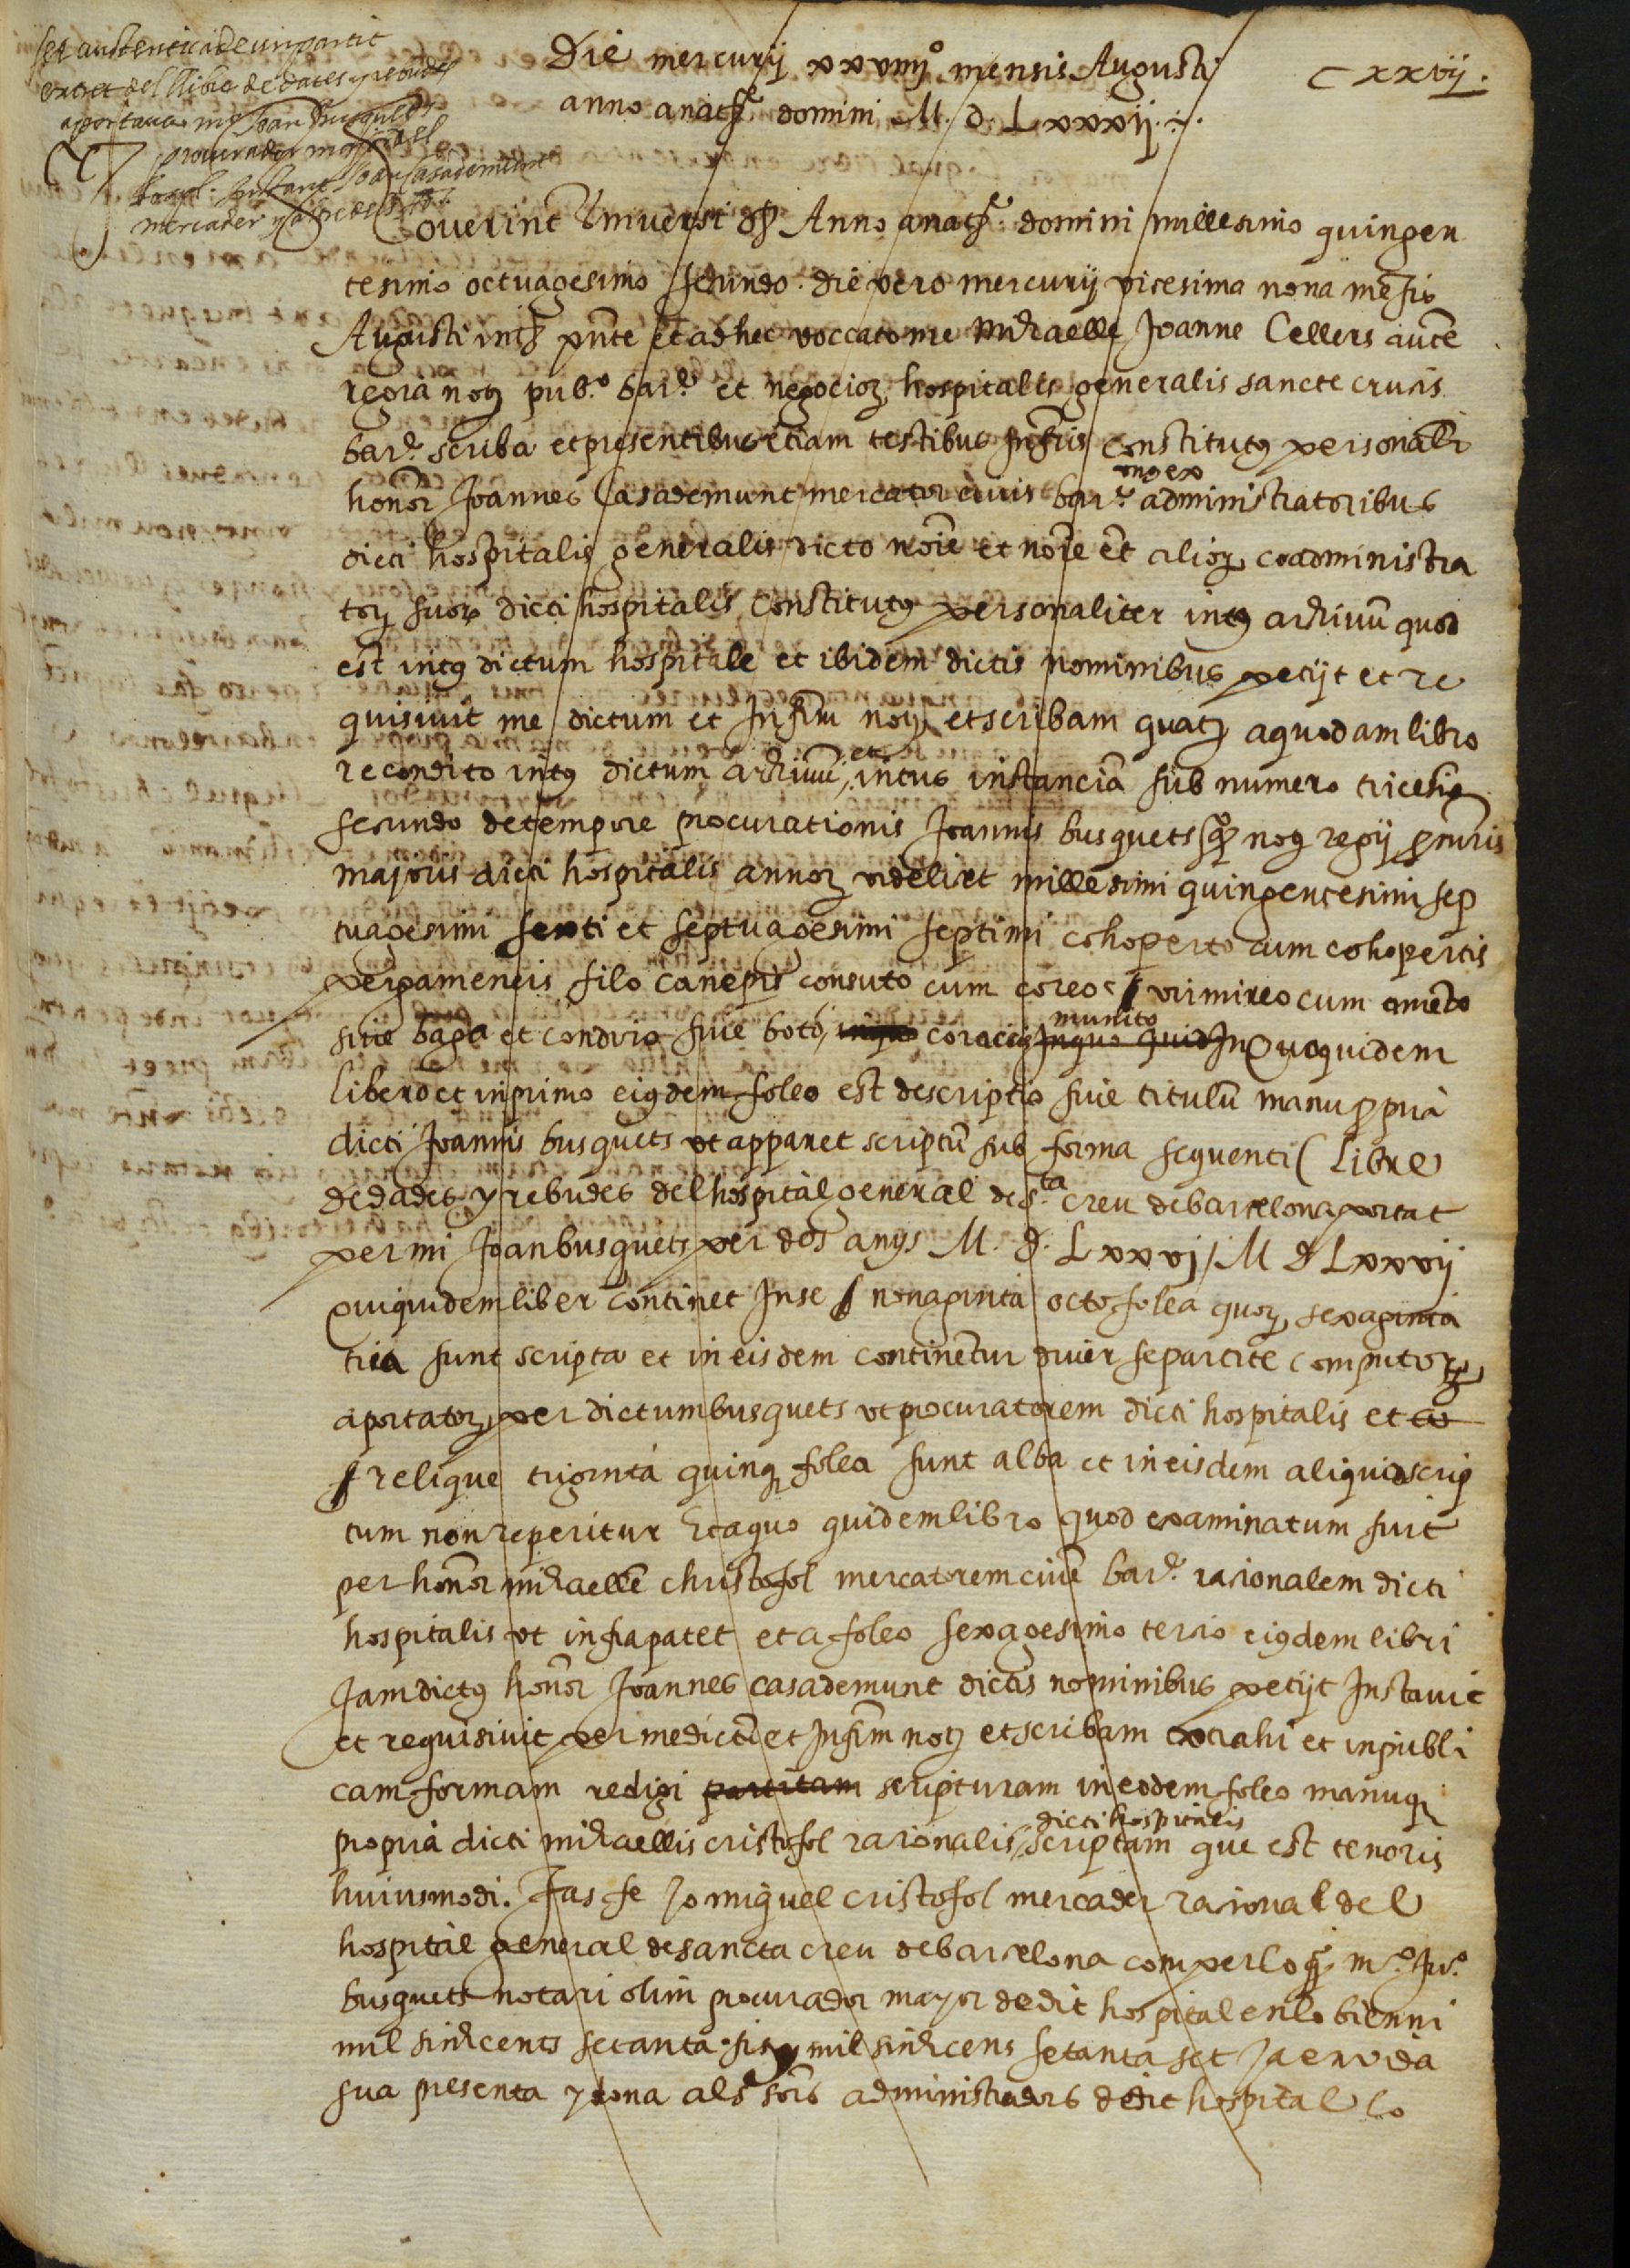 fet autentich de un partit
extret del llibre de dates y rebudes
aportava mº Joan Busquets
procurador major del
hospl. Instant Joan Casademunt
mercader y altre dels
Die mercurij xxviiijº mensis Augusti
anno a natᵉ domini M. d. Lxxxij.
Cxxvij.
Noverint Universi qz Anno a natᵉ. domini millesimo quingen
tesimo octuagesimo secundo. die vero mercurij vicesima nona mesis
Augusti intz pnte et ad hec voccato me Michaelle Joanne Cellers aucte
regia noty pub.º bar.ᵉ et negocioz hospitalis generalis sancte crucis
bar.ᵉ scriba et presentibus etiam testibus Infris constitutus personalr
honor Joannes Casademunt mercator civis bar.ᵉ administratoribus
unus ex
dicti hospitalis generalis dicto noie et noie et alioz coadministra
toz suoz dicti hospitalis, constitutus personaliter intus archivu quod
est intus dictum hospitale et ibidem dictis nominibus petijt et re
quisivit me dictum et Infrm noty et scribam quatz a quodam libro
recondito intus dictum archivu, et intus instancia sub numero tricesio
secundo de tempore procurationis Joannis busquets qº noty regij pcuris
majoris dicti hospitalis annoz videlicet millesimi quingentesimi sep
tuagesimi sexti et septuagesimi septimi cohoperto cum cohopertis
pergameneis filo canepis consuto cum coreo vimineo cum
sive baga et sive boto, coraceis munito In quo quid In Quoquidem
libero et in primo eiusdem foleo est descriptio sive titulu manu ppria
dicti Joannis busquets ut apparet scriptu sub forma sequenti (Libre
de dades y rebudes del hospital general de S.ta creu de barcelona portat
per mi Joan busquets per dos anys M. d. Lxxvj / M d Lxxvij
Quiquidem liber continet In se nonaginta octo folea quoz sexaginta
tria sunt scripta et in eisdem continetur diverse partite computoz
aportatoz per dictum busquets ut procuratorem dicti hospitalis et
relique triginta quinqz folea sunt alba et in eisdem aliquid scrip
tum non reperitur Et a quo quidem libro quod examinatum fuit
per honor michaelle christofol mercatorem cive bar.ᵉ racionalem dicti
hospitalis ut infra patet et a foleo sexagesimo tercio eiusdem libri
Jam dictus honor Joannes casademunt dictis nominibus petijt Instavit
et requisivit per me dictu et Infrm noty et scribam extrahi et in publi
cam formam redigi partitam scripturam in eodem foleo manuqz
propria dicti michaellis cristofol racionalis dicti hospitalis scriptam que est tenoris
huiusmodi. Fas fe Jo miquel cristofol mercader racional del
hospital general de sancta creu de barcelona com per lo qº m.º Jo.º
busquets notari olim procurador major de dit hospital en lo bienni
mil sinchcents setanta sis y mil sinchcens setanta set Ja en vida
sua presenta y dona als sors administradors de dit hospital lo